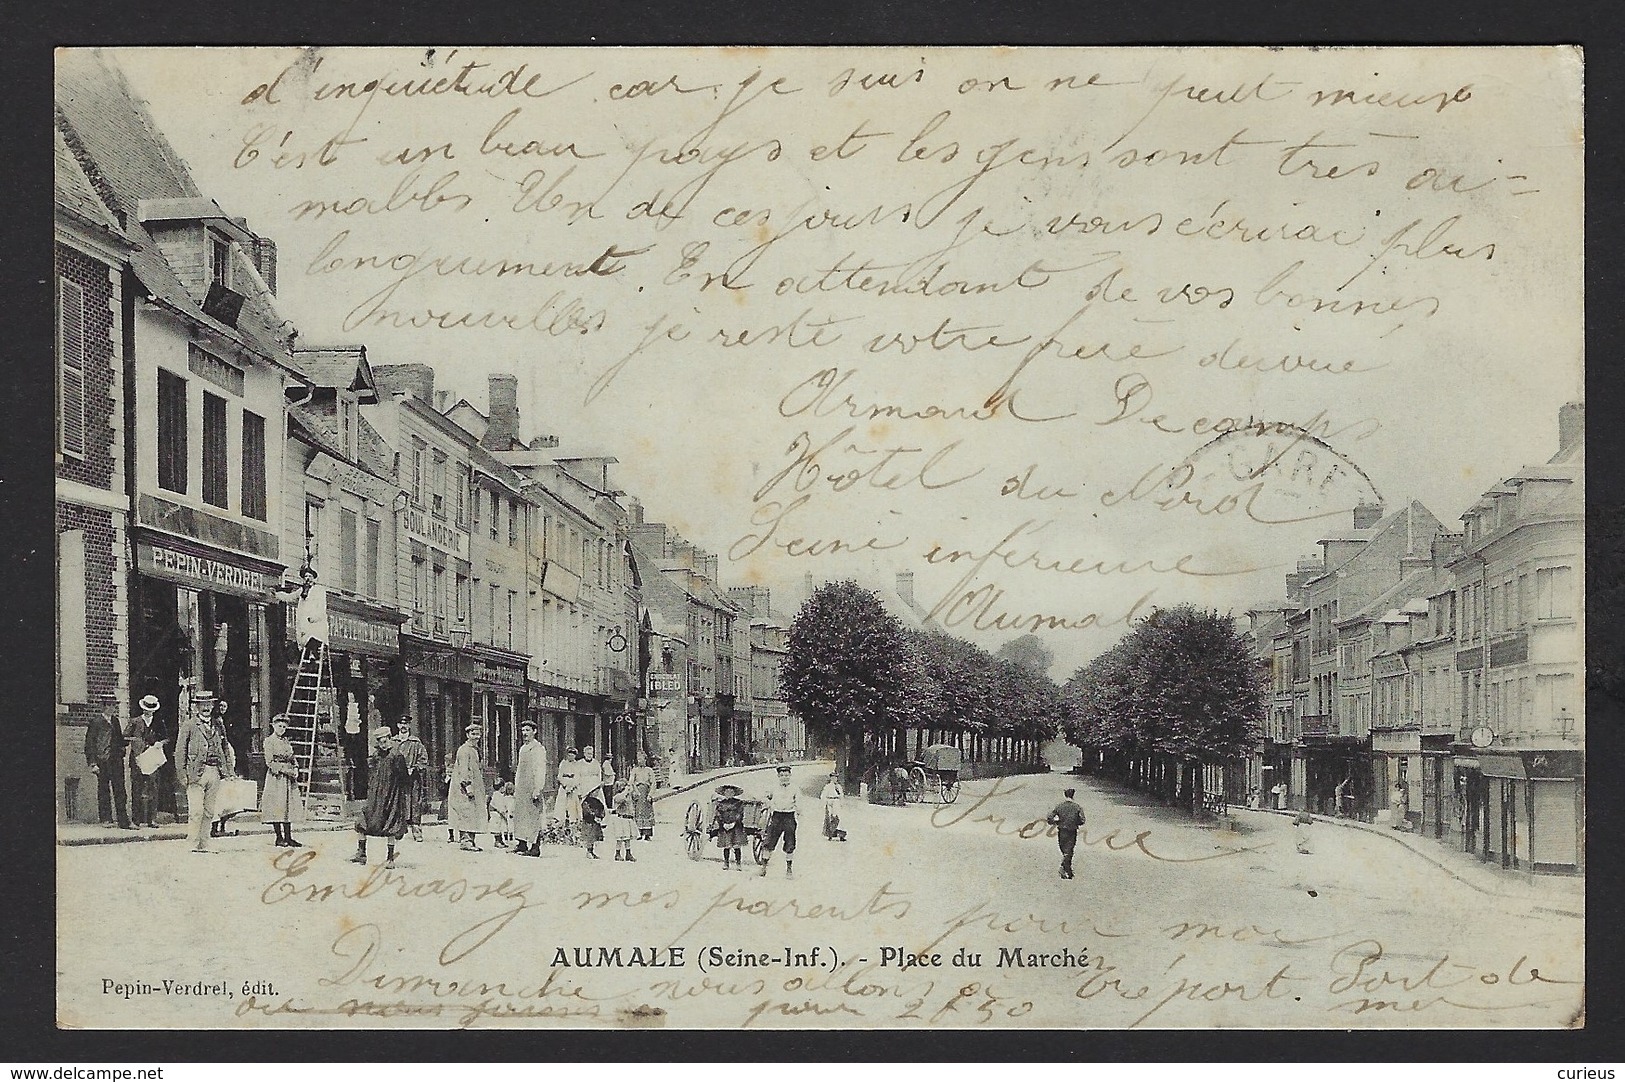 d'inquiétude car je suis on ne peut mieux
C'est un beau pays et les gens sont très ai-
mables. Un de ces jours je vous écrirai plus
longuement. En attendant de vos bonnes
nouvelles je reste votre frère
Armand Decamps
Hôtel du Nord
Seine inférieure
Aumale
France
GARE
PEPIN-VERDREL
BOULANGERIE
Embrassez mes parents pour moi
AUMALE (Seine-Inf.). - Place du Marché
Pepin-Verdrel, édit.
Dimanche nous allons a Tréport. Port de
mer
pour 2f50
www.delcampe.net
curieus